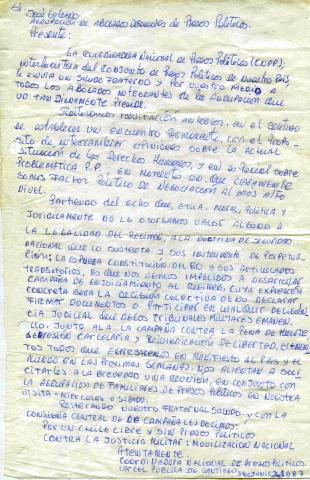 Sr. José Galiano
Agrupación de Abogados Defensores de Presos Políticos.
Presente:
La Coordinadora Nacional de Presos Políticos (CNPP),
interlocutora del conjunto de Presos Políticos de nuestro país,
le envía un saludo fraternal y por vuestro medio a
todos los abogados integrantes de la Agrupación que
Ud. tan dignamente preside.
Reiteramos invitación anterior, en el sentido
de establecer un encuentro permanente, con el propó-
sito de intercambiar opiniones sobre la actual
situación de los Derechos Humanos, y en especial sobre
problemática P.P., en momentos en que claramente
somos factor político de negociación al más alto
nivel.
Partiendo del echo que, etica, moral, política y
juridicamente no le otorgamos valor alguno a
la legalidad del regimen, a la doctrina de seguridad
nacional que lo sustenta y sus instrumentos de perpetua-
ción; la espurea constitución del 80 y sus articulados
transitorios, es que nos vemos impelidos a desarrollar
campaña de enjuiciamiento al regimen, cuya expresión
concreta será la decisión colectiva de no declarar,
firmar documentos o participar en cualquier diligen-
cia judicial que de los tribunales militares emanen.
junto a la campaña contra la pena de muerte
represión carcelaria y reivindicación de libertad, elemen-
tos todos que expresaremos en manifiesto al país y el
mundo en las próximas semanas, nos alientan a soli-
citarles a la brevedad una reunión, en conjunto con
la Agrupación de Familiares de Presos Políticos en nuestra
visita - miercoles o sabado.
Reiterando nuestro fraternal saludo y con la
consigna central de campañas les decimos:
Por un Chile libre y sin presos políticos
Contra la justicia militar: movilización nacional
Atentamente
Coordinadora Nacional de Presos Políticos
Carcel Pública de Santiago 1987